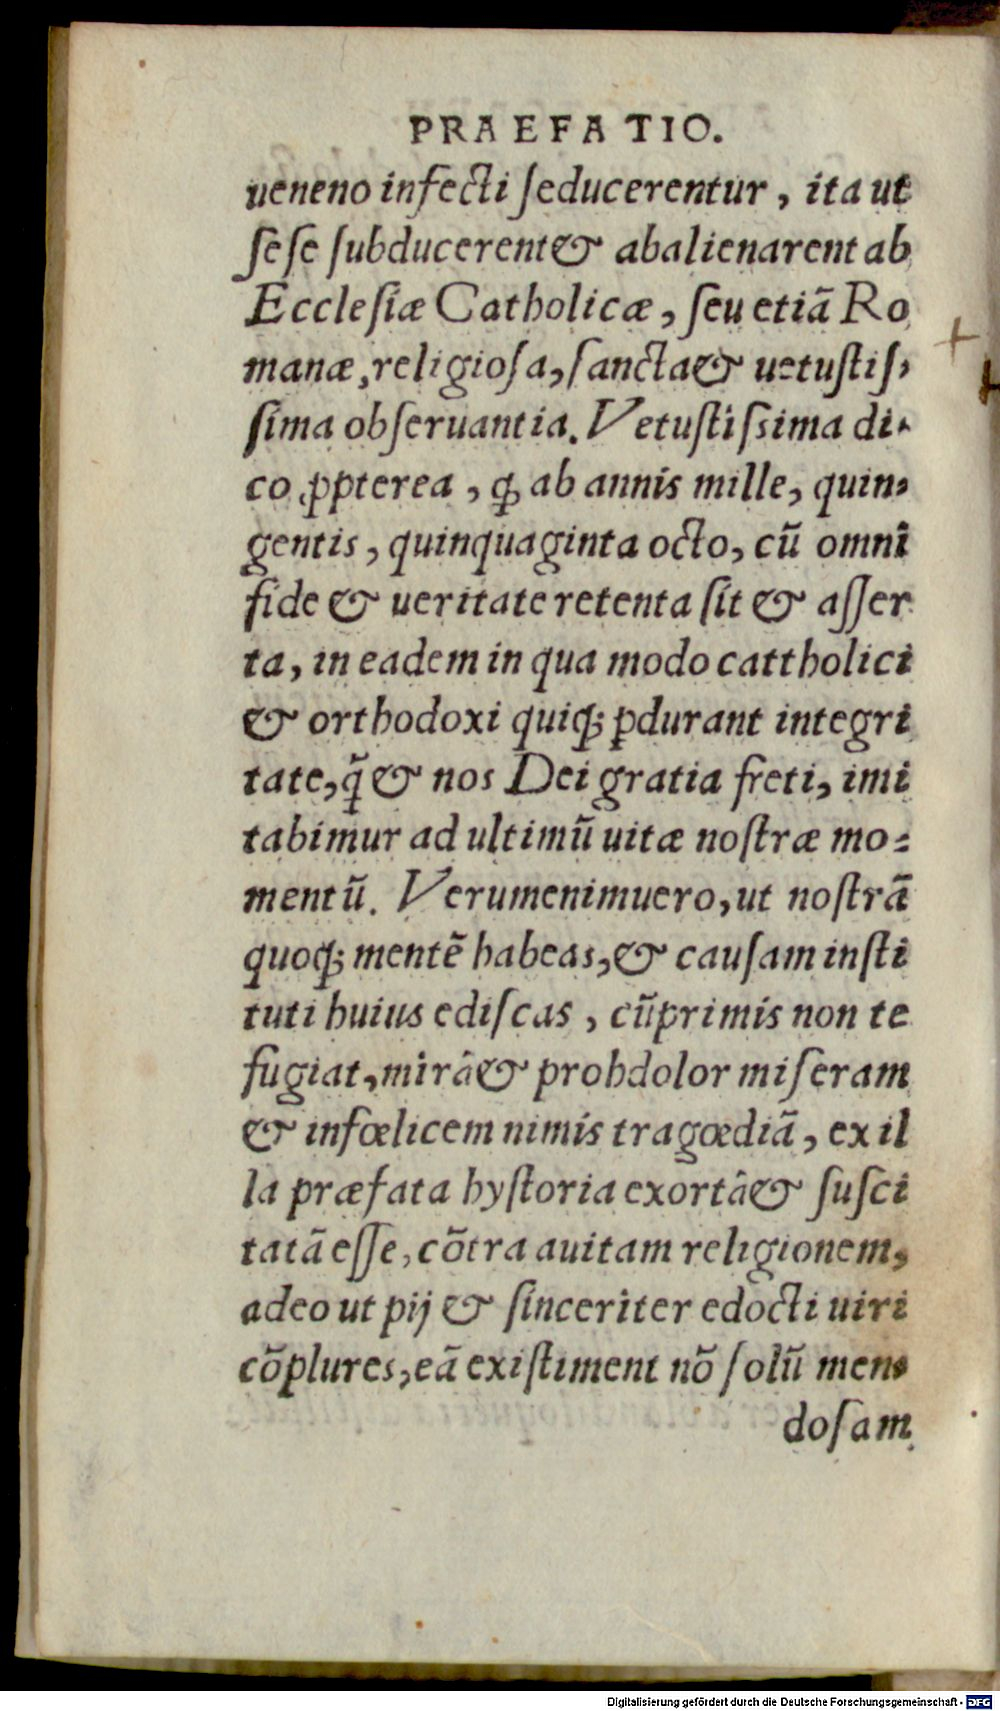 PRAEFATIO.
ueneno infecti ſeducerentur, ita ut
ſeſe ſubducerent & abalienarent ab
Eccleſiæ Catholicæ, ſeu etiā Ro
manæ, religioſa, ſancta & uetuſtiſ-
ſima obſeruantia. Vetuſtiſsima di-
co ꝓpterea, ꝙ ab annis mille, quin-
gentis, quinquaginta octo, cū omni
fide & ueritate retenta ſit & aſſer
ta, in eadem in qua modo cattholici
& orthodoxi quiqꝫ ꝑdurant integri
tate, q̄ & nos Dei gratia freti, imi
tabimur ad ultimū uitæ noſtræ mo-
mentū. Verumenimuero, ut noſtrā
quoqꝫ mentē habeas, & cauſam inſti
tuti huius ediſcas, cūprimis non te
fugiat, mirā & prohdolor miſeram
& infœlicem nimis tragœdiā, ex il
la præfata hyſtoria exortā & ſuſci
tatā eſſe, cōtra auitam religionem,
adeo ut pij & ſinceriter edocti uiri
cōplures, eā exiſtiment nō ſolū men-
doſam
Digitalisierung gefördert durch die Deutsche Forschungsgemeinschaft - DFG